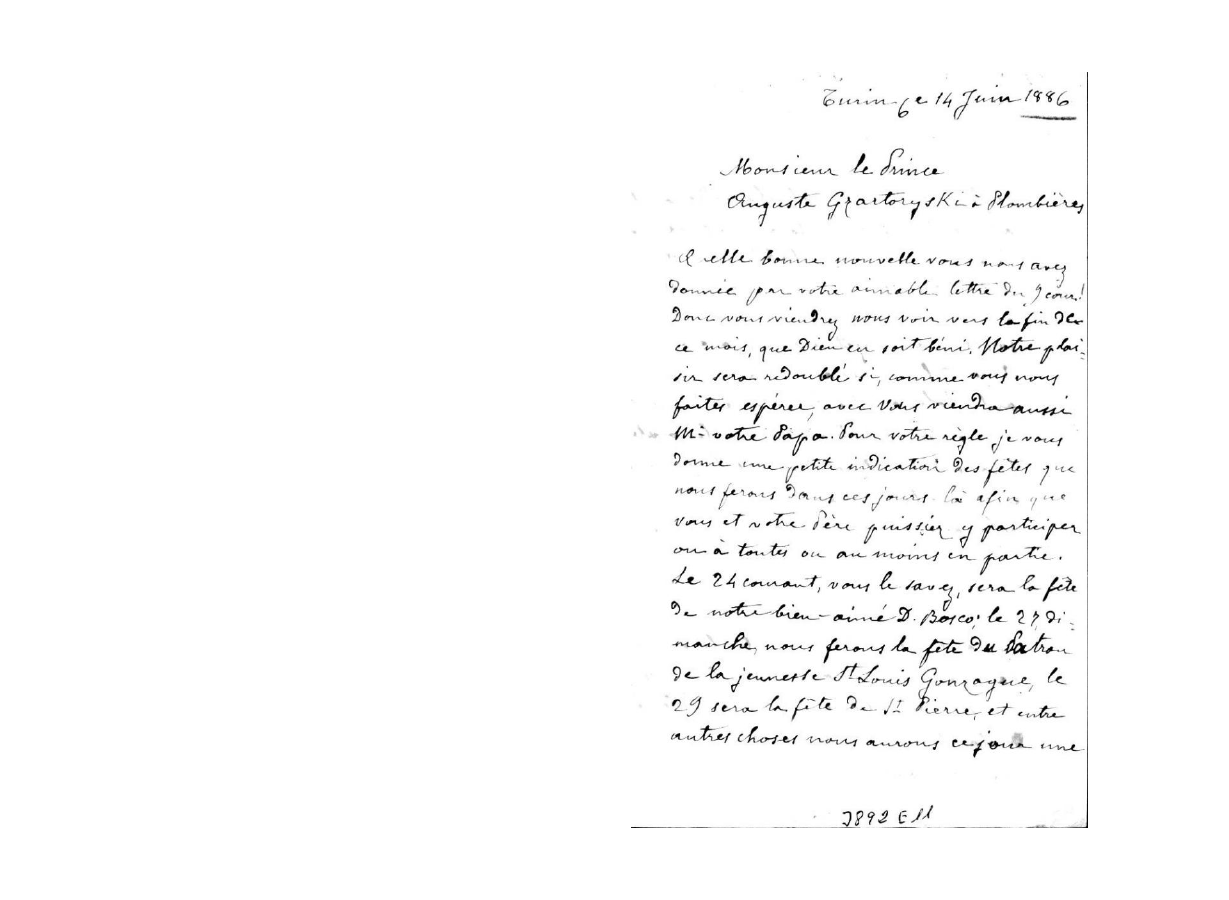 Turin, le 14 Juin 1886
Monsieur le Prince
Auguste Gzartoryski à Plombières
Quelle bonne nouvelle vous nous avez
donnée par votre aimable lettre du 9 cour!
Donc vous viendrez nous voir vers la fin de
ce mois, que Dieu en soit béni. Notre plai-
sir sera redoublé si, comme vous nous
faites espérer, avec Vous viendra aussi
Mr votre Papa. Pour votre règle je vous
donne une petite indication des fêtes que
nous ferons dans ces jours-là afin que
vous et votre Père puissiez y participer
ou à toutes ou au moins en partie.
Le 24 courant, vous le savez, sera la fête
de notre bien-aimé D. Bosco; le 27, di-
manche, nous ferons la fête du Patron
de la jeunesse St Louis Gonzague, le
29 sera la fête de St Pierre, et entre
autres choses nous aurons ce jour une
3892 E11